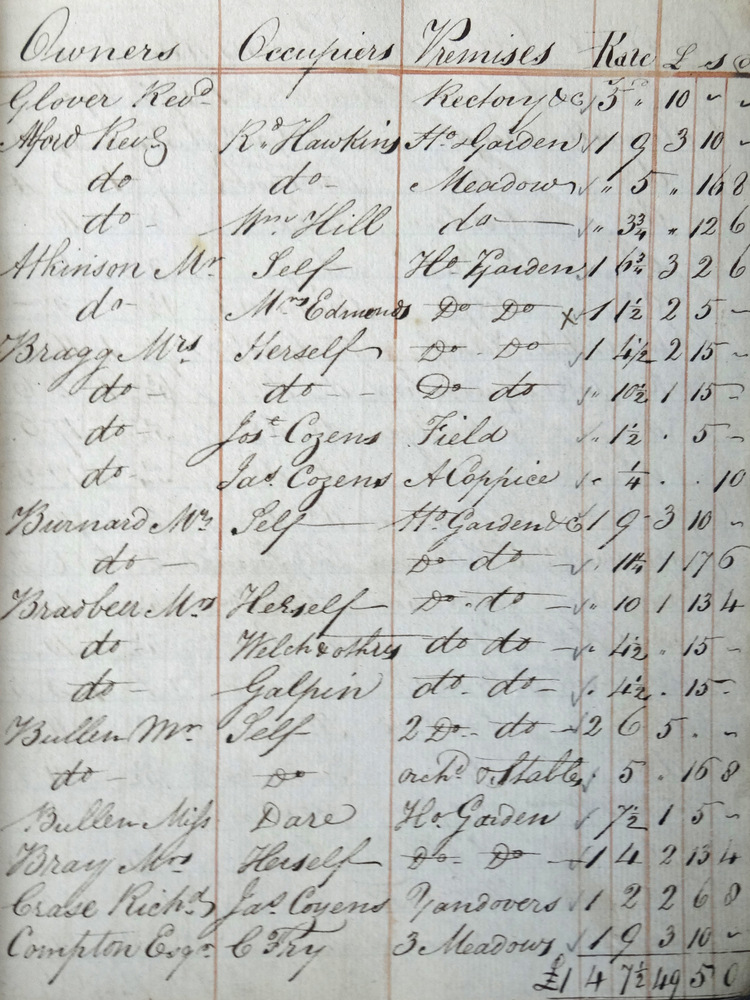 Owners Occupiers Premises Rate £ s d
Glover Revd Rectory &c 5 " 10 - -
Alford Revd Rd Hawkins Ho & Garden 1 9 3 10 -
do do - Meadow " 5 " 16 8
do - Wm Hill do " 3¾ " 12 6
Atkinson Mr Self Ho Garden 1 6¾ 3 2 6
do - Mrs Edmonds Do Do x 1 1½ 2 5 -
Bragg Mrs Herself Do - Do 1 4½ 2 15 -
do - do - Do do " 10½ 1 15 -
do - Jost Cozens Field " 1½ . 5 -
do - Jas Cozens A Coppice " ¼ . . 10
Burnard Mr Self Ho Garden &c 1 9 3 10 -
do - Do do - " 11¼ 1 17 6
Bradbeer Mrs Herself Do - do - " 10 1 13 4
do Welch & othrs do do - " 4½ . 15 -
do - Galpin do - do - . 4½ . 15 -
Bullen Mr Self 2 Do - do - 2 6 5 . -
do - Do orchd & Stable 5 " 16 8
Bullen Miss Dare Ho. Garden 7½ 1 5 -
Bray Mrs Herself Do - Do - 1 4 2 13 4
Crase Richd Jas Cozens Yandovers 1 2 2 6 8
Compton Esqr C Fry 3 Meadows 1 9 3 10 -
£1 4 7½ 49 5 0